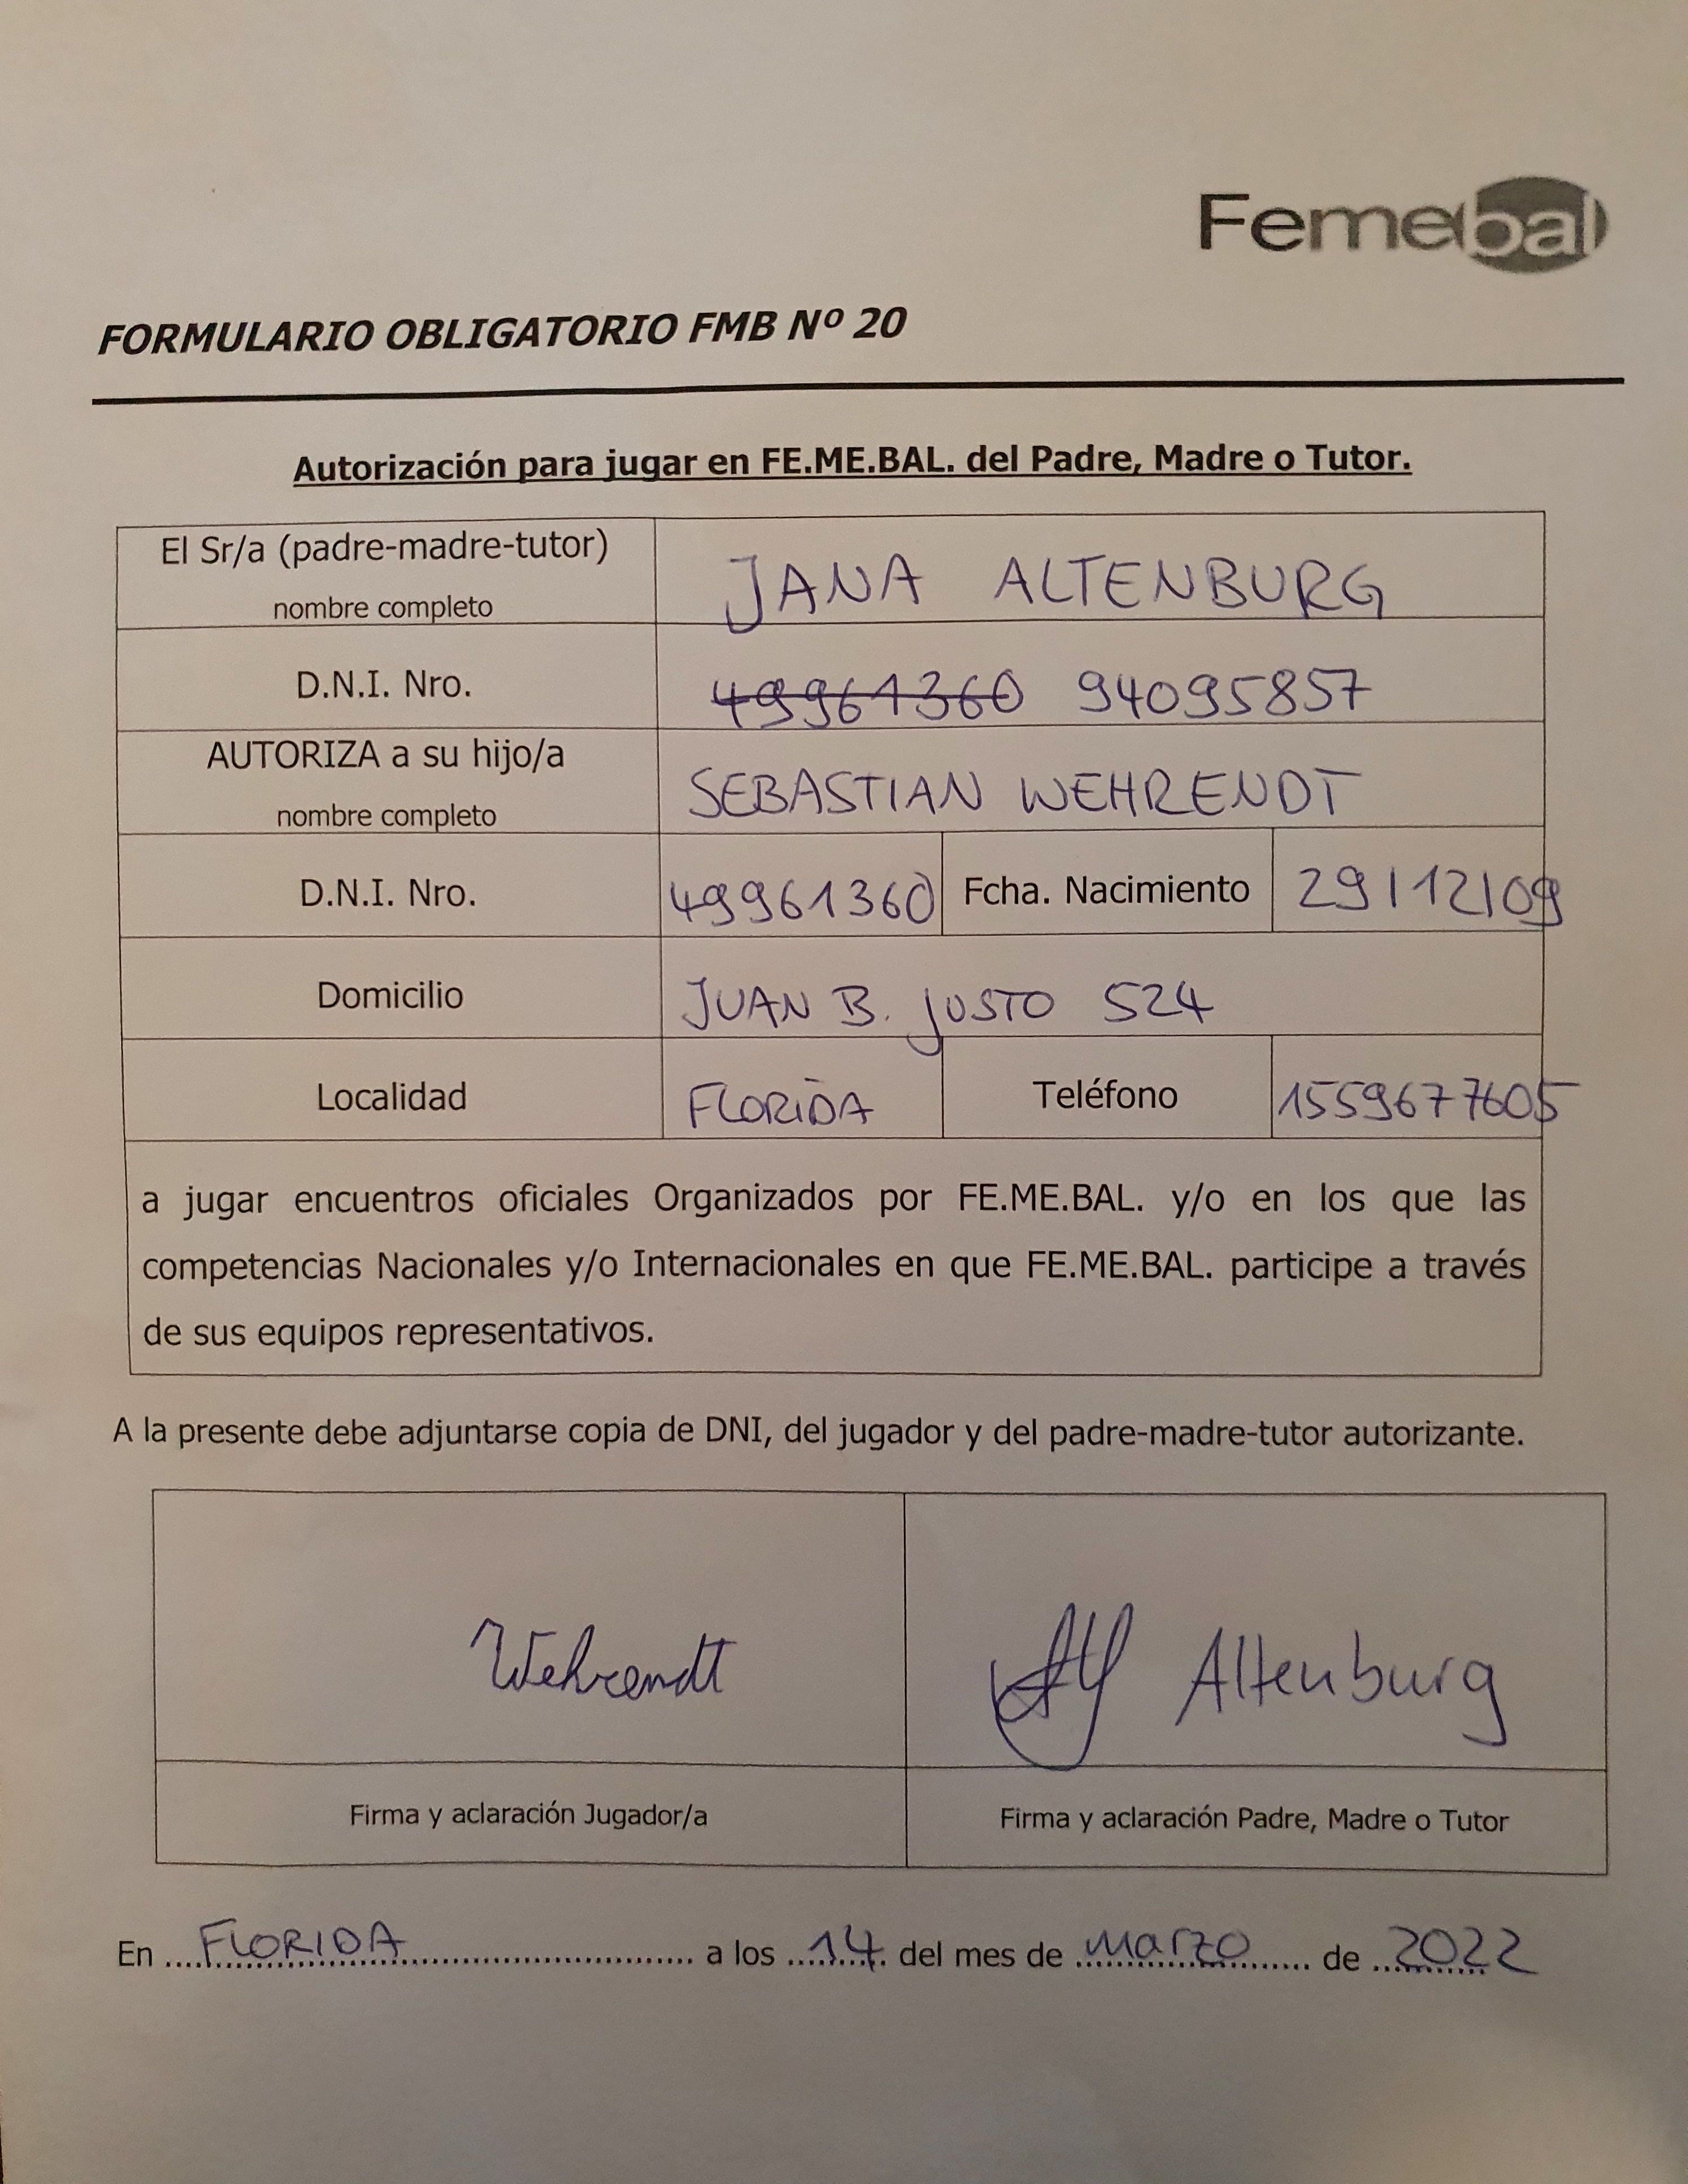 Femebal
FORMULARIO OBLIGATORIO FMB Nº 20
Autorización para jugar en FE.ME.BAL. del Padre, Madre o Tutor.
El Sr/a (padre-madre-tutor)
nombre completo
JANA ALTENBURG
D.N.I. Nro.
49961360 94095857
AUTORIZA a su hijo/a
nombre completo
SEBASTIAN WEHRENDT
D.N.I. Nro.
49961360
Fcha. Nacimiento
29/12/09
Domicilio
JUAN B. JUSTO 524
Localidad
FLORIDA
Teléfono
1559677605
a jugar encuentros oficiales Organizados por FE.ME.BAL. y/o en los que las
competencias Nacionales y/o Internacionales en que FE.ME.BAL. participe a través
de sus equipos representativos.
A la presente debe adjuntarse copia de DNI, del jugador y del padre-madre-tutor autorizante.
Wehrendt
Altenburg
Firma y aclaración Jugador/a
Firma y aclaración Padre, Madre o Tutor
En ....FLORIDA.................................. a los ..14.. del mes de ..Marzo....... de ..2022